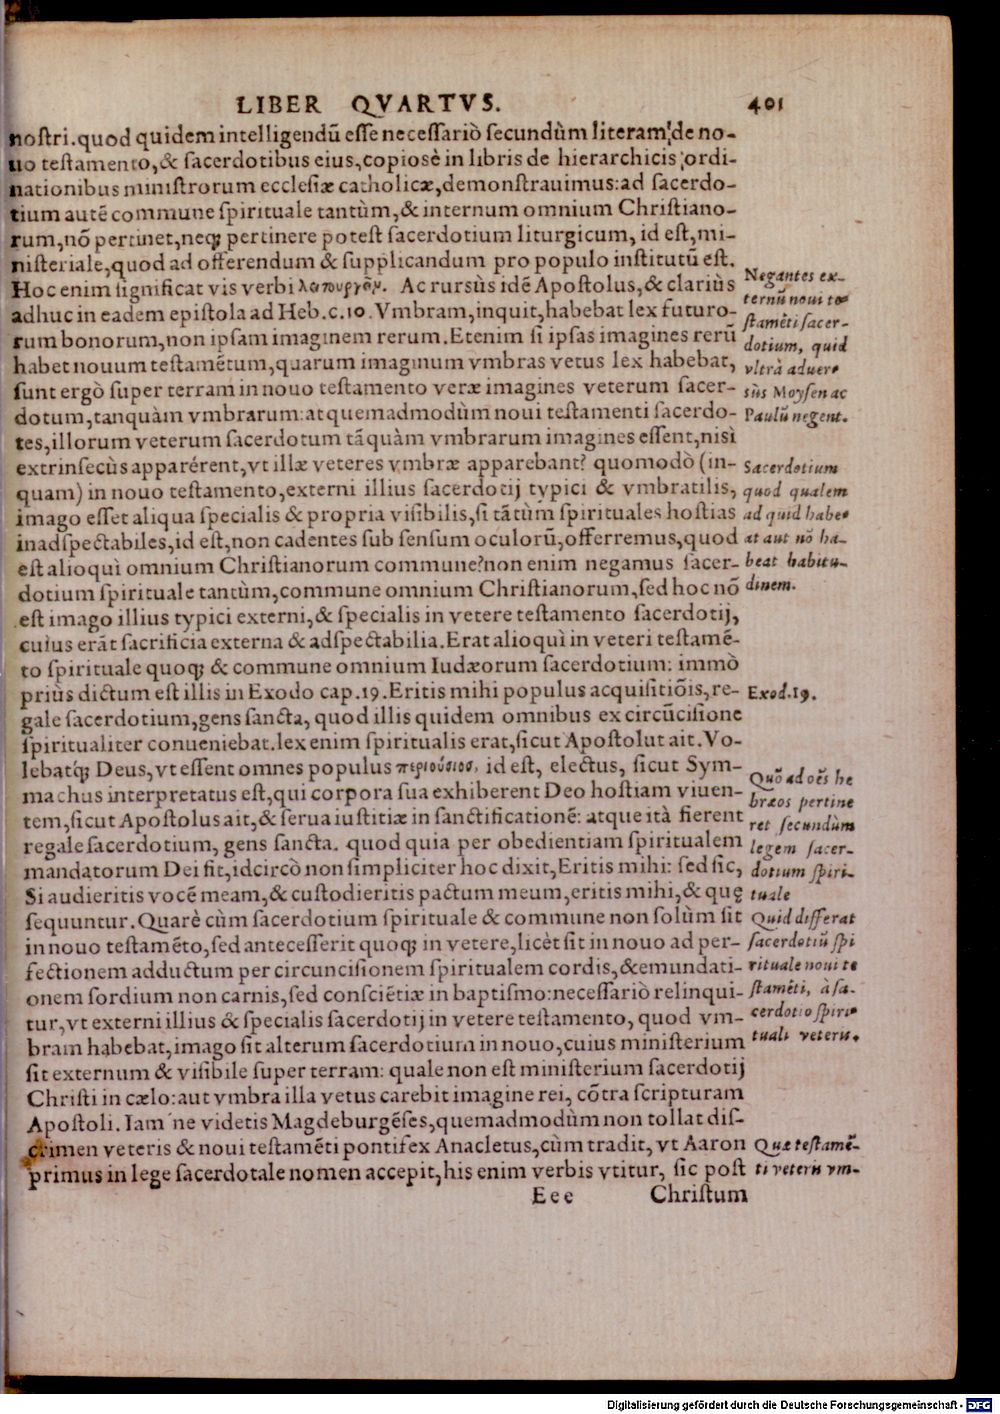 LIBER QVARTVS. 401
nostri.quod quidem intelligendũ esse necessariò secundùm literam de no-
uo testamento,& sacerdotibus eius,copiosè in libris de hierarchicis ordi-
nationibus ministrorum ecclesiæ catholicæ,demonstrauimus:ad sacerdo-
tium autẽ commune spirituale tantùm,& internum omnium Christiano-
rum,nõ pertinet,neq; pertinere potest sacerdotium liturgicum, id est,mi-
nisteriale,quod ad offerendum & supplicandum pro populo institutũ est.
Hoc enim significat vis verbi λειτουργεῖν. Ac rursùs idẽ Apostolus,& clariùs
adhuc in eadem epistola ad Heb.c.10.Vmbram,inquit,habebat lex futuro-
rum bonorum,non ipsam imaginem rerum.Etenim si ipsas imagines rerũ
habet nouum testamẽtum,quarum imaginum vmbras vetus lex habebat,
sunt ergò super terram in nouo testamento veræ imagines veterum sacer-
dotum,tanquàm vmbrarum:at quemadmodùm noui testamenti sacerdo-
tes,illorum veterum sacerdotum tãquàm vmbrarum imagines essent,nisi
extrinsecùs apparérent,vt illæ veteres vmbræ apparebant? quomodò (in-
quam) in nouo testamento,externi illius sacerdotij typici & vmbratilis,
imago esset aliqua specialis & propria visibilis,si tãtùm spirituales hostias
inadspectabiles,id est,non cadentes sub sensum oculorũ,offerremus,quod
est alioquì omnium Christianorum commune?non enim negamus sacer-
dotium spirituale tantùm,commune omnium Christianorum,sed hoc nõ
est imago illius typici externi,& specialis in vetere testamento sacerdotij,
cuius erãt sacrificia externa & adspectabilia.Erat alioquì in veteri testamẽ-
to spirituale quoq; & commune omnium Iudæorum sacerdotium: immò
priùs dictum est illis in Exodo cap.19.Eritis mihi populus acquisitiõis,re-
gale sacerdotium,gens sancta, quod illis quidem omnibus ex circũcisione
spiritualiter conueniebat.lex enim spiritualis erat,sicut Apostolut ait.Vo-
lebatq́; Deus,vt essent omnes populus περιούσιος, id est, electus, sicut Sym-
machus interpretatus est,qui corpora sua exhiberent Deo hostiam viuen-
tem,sicut Apostolus ait,& serua iustitiæ in sanctificationẽ: atque ità fierent
regale sacerdotium, gens sancta. quod quia per obedientiam spiritualem
mandatorum Dei fit,idcircò non simpliciter hoc dixit,Eritis mihi: sed sic,
Si audieritis vocẽ meam,& custodieritis pactum meum,eritis mihi,& quę
sequuntur.Quarè cùm sacerdotium spirituale & commune non solùm sit
in nouo testamẽto,sed antecesserit quoq; in vetere,licèt sit in nouo ad per-
fectionem adductum per circuncisionem spiritualem cordis,& emundati-
onem sordium non carnis,sed consciẽtiæ in baptismo:necessariò relinqui-
tur,vt externi illius & specialis sacerdotij in vetere testamento, quod vm-
bram habebat,imago sit alterum sacerdotium in nouo,cuius ministerium
sit externum & visibile super terram: quale non est ministerium sacerdotij
Christi in cælo:aut vmbra illa vetus carebit imagine rei, cõtra scripturam
Apostoli. Iam ne videtis Magdeburgẽses,quemadmodùm non tollat dis-
crimen veteris & noui testamẽti pontifex Anacletus,cùm tradit, vt Aaron
primus in lege sacerdotale nomen accepit,his enim verbis vtitur, sic post
Eee Christum
Negantes ex-
ternũ noui te-
stamẽti sacer-
dotium, quid
vltrà aduer-
sùs Moysen ac
Paulũ negent.
Sacerdotium
quod qualem
ad quid habe-
at aut nõ ha-
beat habitu-
dinem.
Exod.19.
Quõ ad oẽs he
bræos pertine
ret secundùm
legem sacer-
dotium spiri-
tuale
Quid differat
sacerdotiũ spi
rituale noui te
stamẽti, à sa-
cerdotio spiri-
tuali veteris.
Quæ testamẽ-
ti veteris vm-
Digitalisierung gefördert durch die Deutsche Forschungsgemeinschaft - DFG